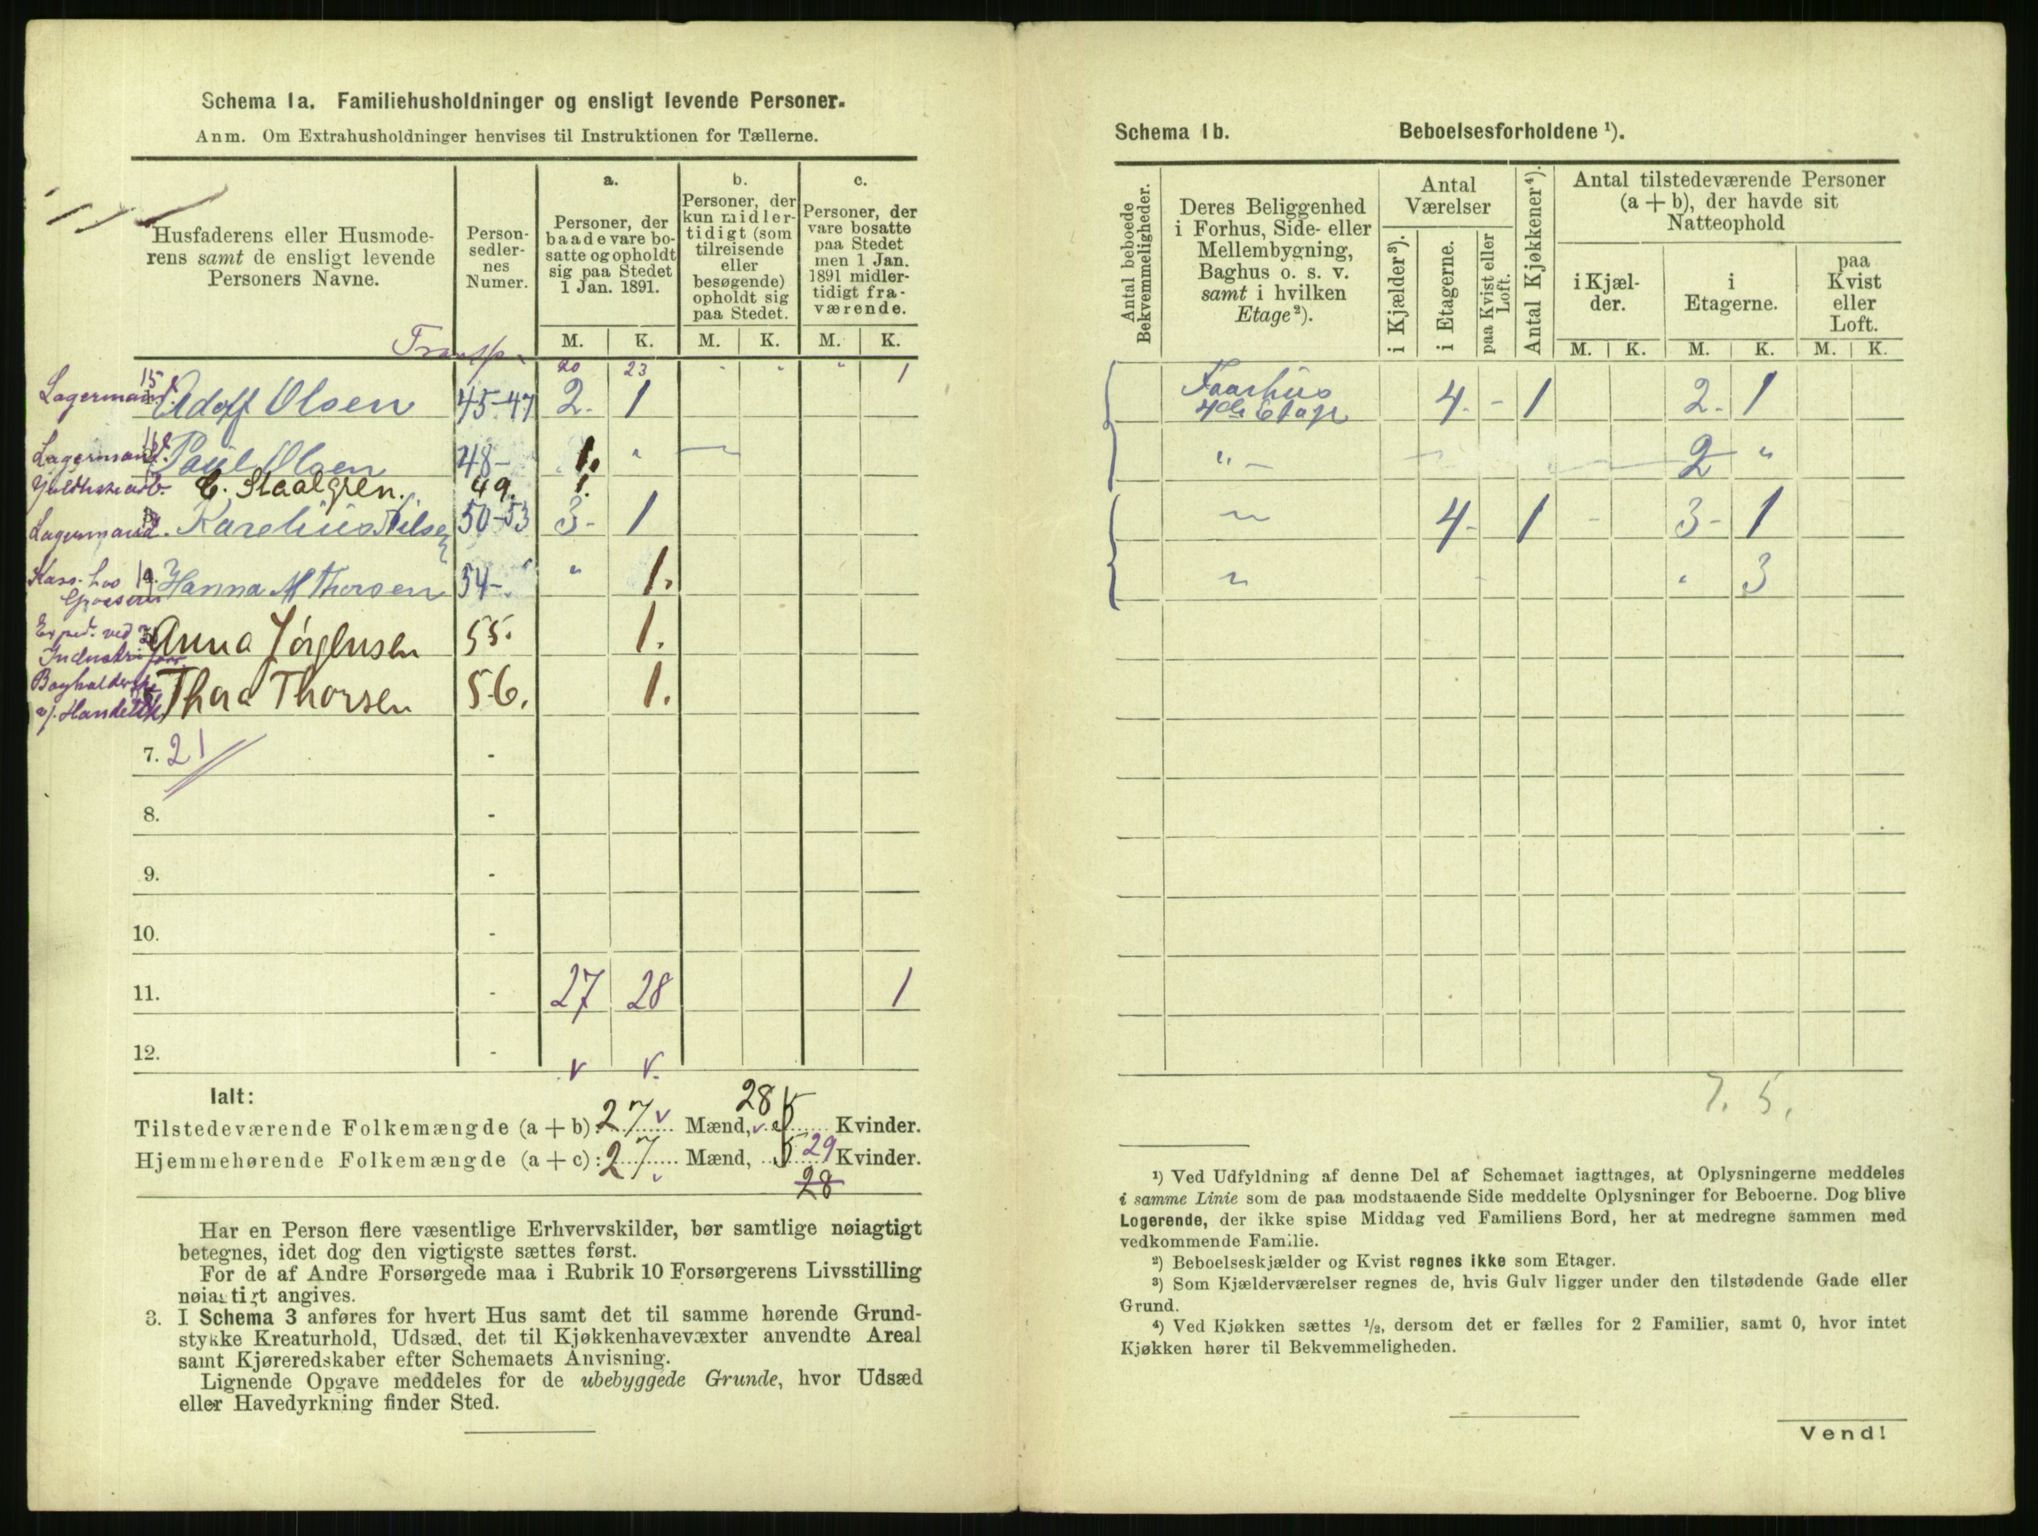 Schema 1a. Familiehusholdninger og ensligt levende Personer.
Anm. Om Extrahusholdninger henvises til Instruktionen for Tællerne.
Husfaderens eller Husmode-
rens samt de ensligt levende
Personers Navne.
Person-
sedler-
nes
Numer.
a.
Personer, der
baade vare bo-
satte og opholdt
sig paa Stedet
1 Jan. 1891.
b.
Personer, der
kun midler-
tidigt (som
tilreisende
eller
besøgende)
opholdt sig
paa Stedet.
c.
Personer, der
vare bosatte
paa Stedet
men 1 Jan.
1891 midler-
tidigt fra-
værende.
M. K. M. K. M. K.
Transp. 20 23 " " " 1
Lagermand. 15 Adolf Olsen 45-47 2. 1
Lagermand. 16 Paul Olsen 48- 1. "
C. Staalgren. 49. 1.
Lagermand. Karelius Nilsen 50-53 3- 1
19. Hanna M Thorsen 54- " 1.
Exped. ved
Anna Jørgensen 55. 1.
Thora Thorsen 56. 1.
7. 21 -
8. -
9. -
10. -
11. - 27 28 1
12. - v v.
Ialt:
Tilstedeværende Folkemængde (a + b): 27 v Mænd, v 28 Kvinder.
Hjemmehørende Folkemængde (a + c): 27 v Mænd, 29 Kvinder.
28
Har en Person flere væsentlige Erhvervskilder, bør samtlige nøiagtigt
betegnes, idet dog den vigtigste sættes først.
For de af Andre Forsørgede maa i Rubrik 10 Forsørgerens Livsstilling
nøiagtigt angives.
3. I Schema 3 anføres for hvert Hus samt det til samme hørende Grund-
stykke Kreaturhold, Udsæd, det til Kjøkkenhavevæxter anvendte Areal
samt Kjøreredskaber efter Schemaets Anvisning.
Lignende Opgave meddeles for de ubebyggede Grunde, hvor Udsæd
eller Havedyrkning finder Sted.
Schema 1b. Beboelsesforholdene ¹).
Antal beboede
Bekvemmeligheder.
Deres Beliggenhed
i Forhus, Side- eller
Mellembygning,
Baghus o. s. v.
samt i hvilken
Etage²).
Antal
Værelser
i Kjælder³).
i Etagerne.
paa Kvist eller
Loft.
Antal Kjøkkener⁴).
Antal tilstedeværende Personer
(a + b), der havde sit
Natteophold
i Kjæl-
der.
i
Etagerne.
paa
Kvist
eller
Loft.
M. K. M. K. M. K.
4de Etage 4. - 1 2. 1
" - 2 "
" 4- 1 - 3- 1
" " 3
7. 5.
¹) Ved Udfyldning af denne Del af Schemaet iagttages, at Oplysningerne meddeles
i samme Linie som de paa modstaaende Side meddelte Oplysninger for Beboerne. Dog blive
Logerende, der ikke spise Middag ved Familiens Bord, her at medregne sammen med
vedkommende Familie.
²) Beboelseskjælder og Kvist regnes ikke som Etager.
³) Som Kjælderværelser regnes de, hvis Gulv ligger under den tilstødende Gade eller
Grund.
⁴) Ved Kjøkken sættes ½, dersom det er fælles for 2 Familier, samt 0, hvor intet
Kjøkken hører til Bekvemmeligheden.
Vend!